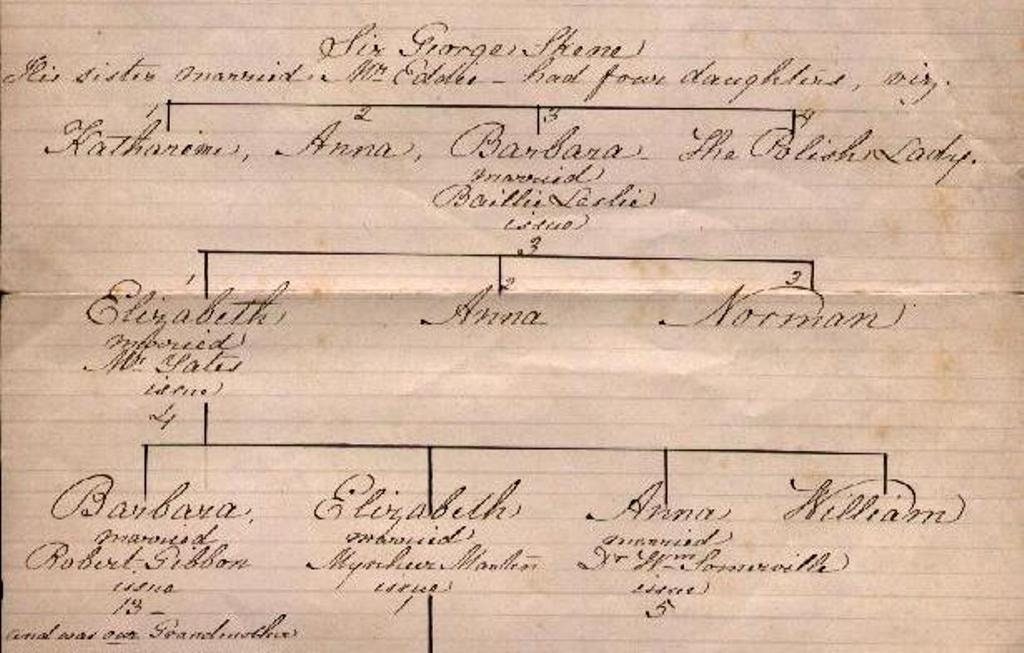 Sir George Skene
His sister married Mr. Eddie - had four daughters, viz.
1 2 3 4
Katharine, Anna, Barbara - The Polish Lady.
married
Baillie Leslie
issue
3
1 2 3
Elizabeth Anna Norman
married
Mr. Yates
issue
4
Barbara, Elizabeth Anna William
married married married
Robert Gibbon Mynheer Dr Wm Somerville
issue issue issue
13 - 1 5
and was our Grandmother